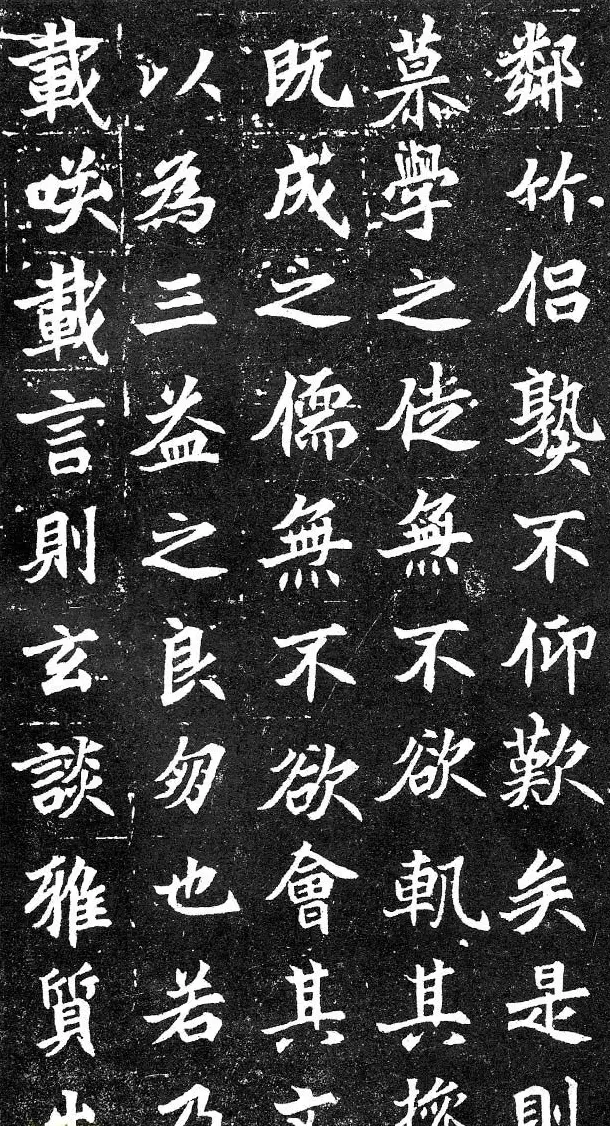 鄰竹侶孰不仰歎矣是則
慕學之徒無不欲軌其操
既成之儒無不欲會其文
以為三益之良朋也若乃
載咲載言則玄談雅質出